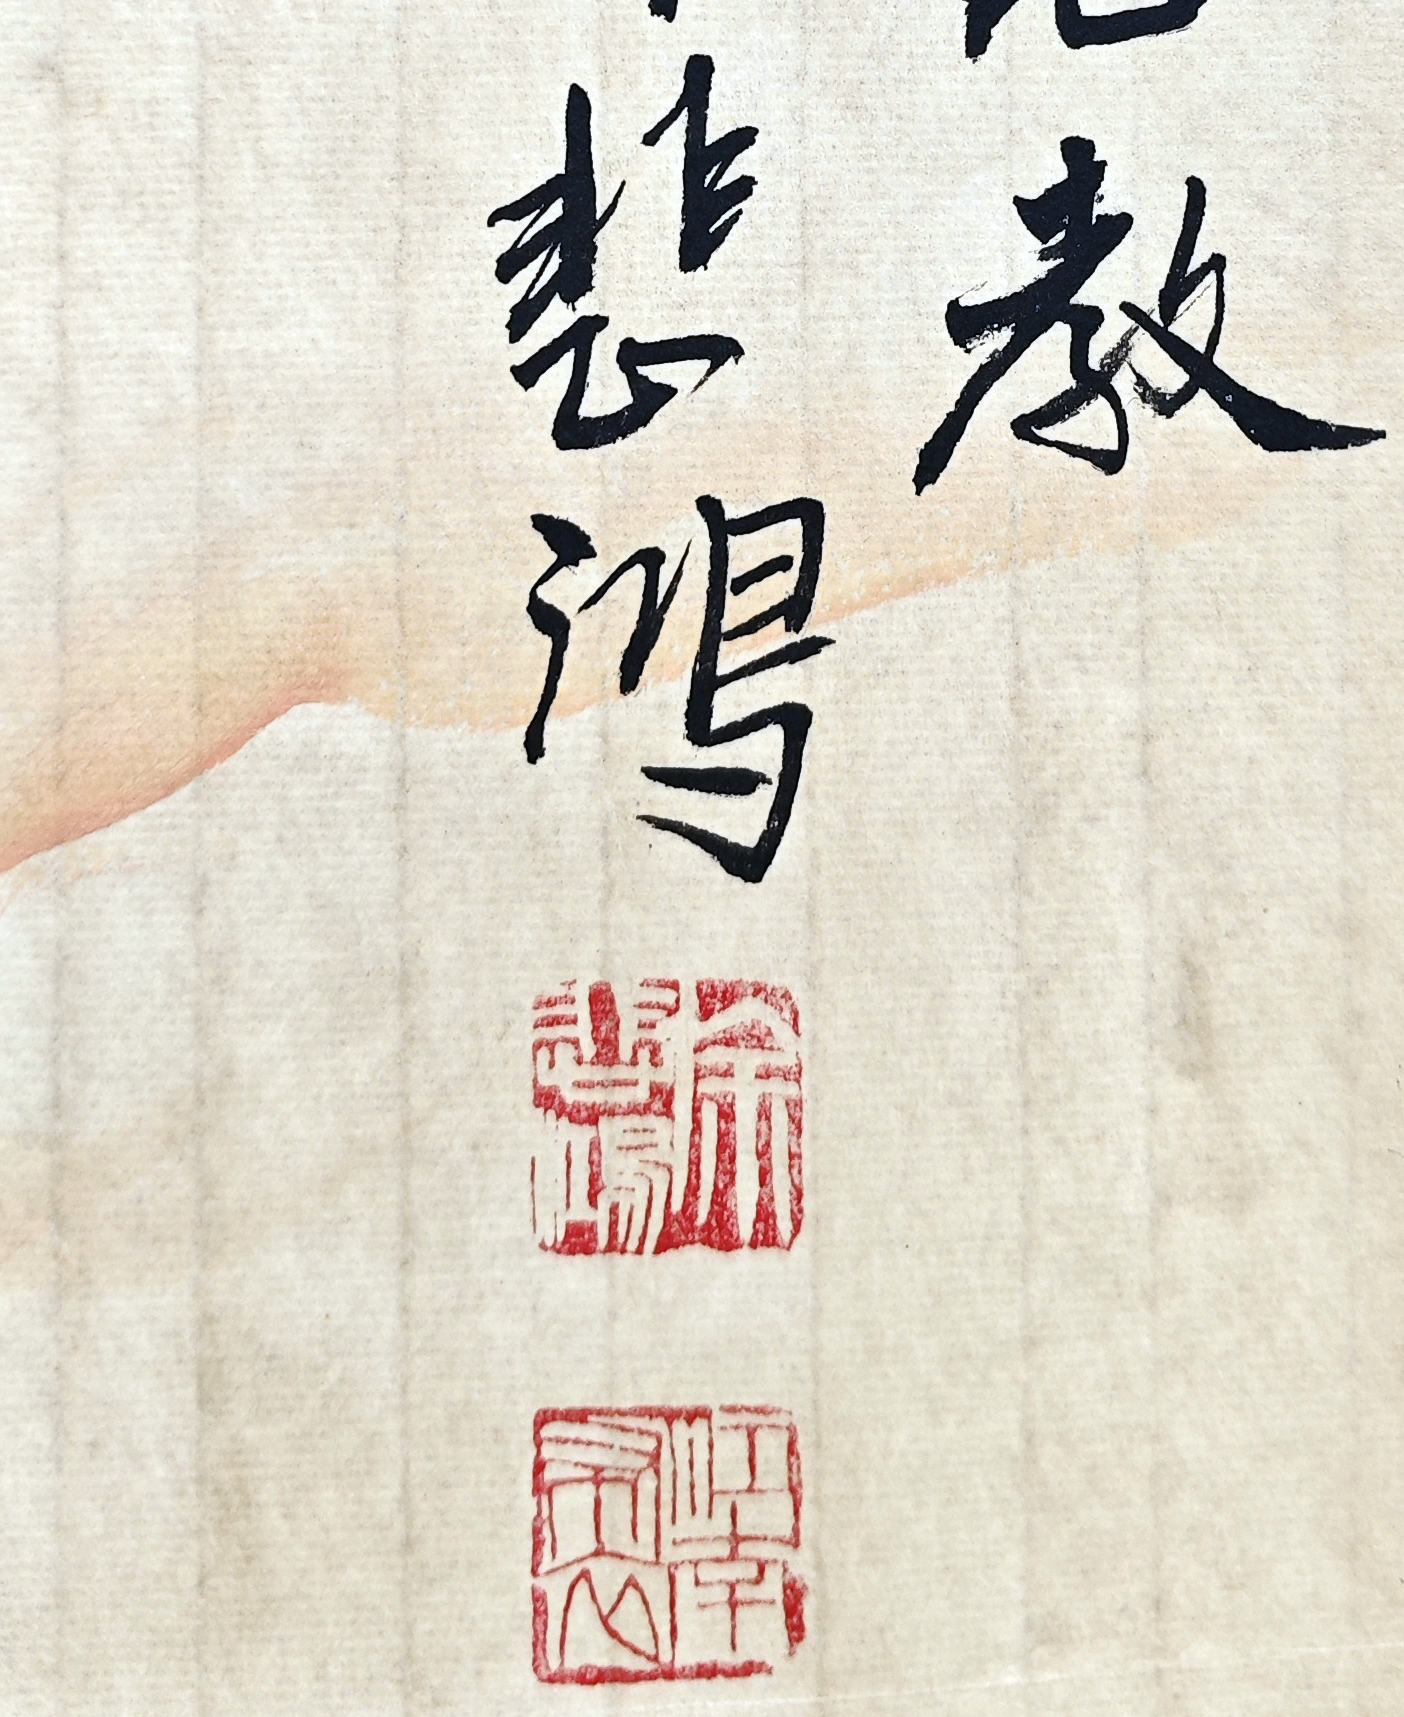 教
悲鴻
徐悲鴻
江南布衣